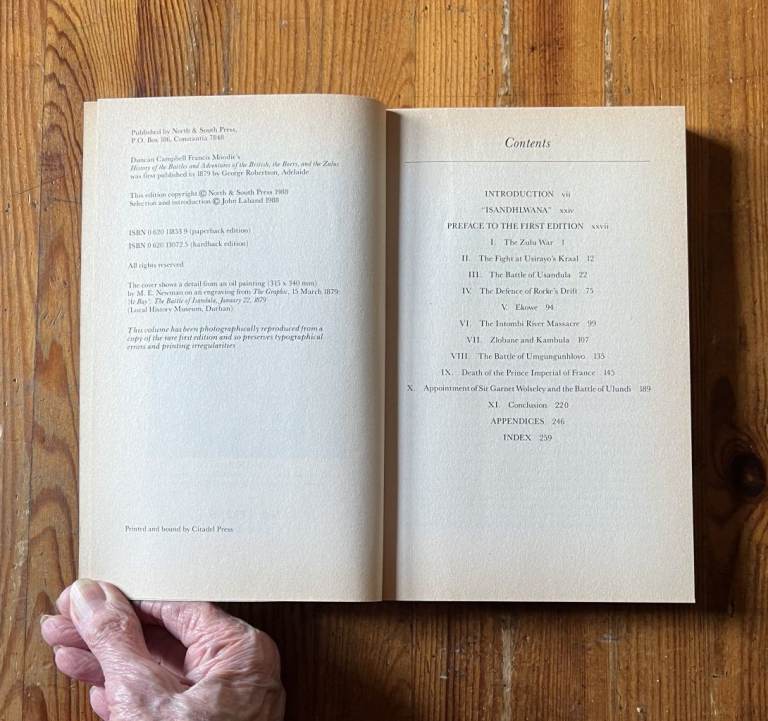 Published by North & South Press,
P.O. Box 106, Constantia 7848
Duncan Campbell Francis Moodie's
History of the Battles and Adventures of the British, the Boers, and the Zulus
was first published in 1879 by George Robertson, Adelaide
This edition copyright © North & South Press 1988
Selection and introduction © John Laband 1988
ISBN 0 620 11853 9 (paperback edition)
ISBN 0 620 13072 5 (hardback edition)
All rights reserved
The cover shows a detail from an oil painting (315 x 340 mm)
by M. E. Newman on an engraving from The Graphic, 15 March 1879:
'At Bay': The Battle of Isandula, January 22, 1879
(Local History Museum, Durban)
This volume has been photographically reproduced from a
copy of the rare first edition and so preserves typographical
errors and printing irregularities
Printed and bound by Citadel Press
Contents
INTRODUCTION vii
"ISANDHLWANA" xxiv
PREFACE TO THE FIRST EDITION xxvii
I. The Zulu War 1
II. The Fight at Usirayo's Kraal 12
III. The Battle of Usandula 22
IV. The Defence of Rorke's Drift 75
V. Ekowe 94
VI. The Intombi River Massacre 99
VII. Zlobane and Kambula 107
VIII. The Battle of Umgungunhlovo 135
IX. Death of the Prince Imperial of France 145
X. Appointment of Sir Garnet Wolseley and the Battle of Ulundi 189
XI. Conclusion 220
APPENDICES 246
INDEX 259